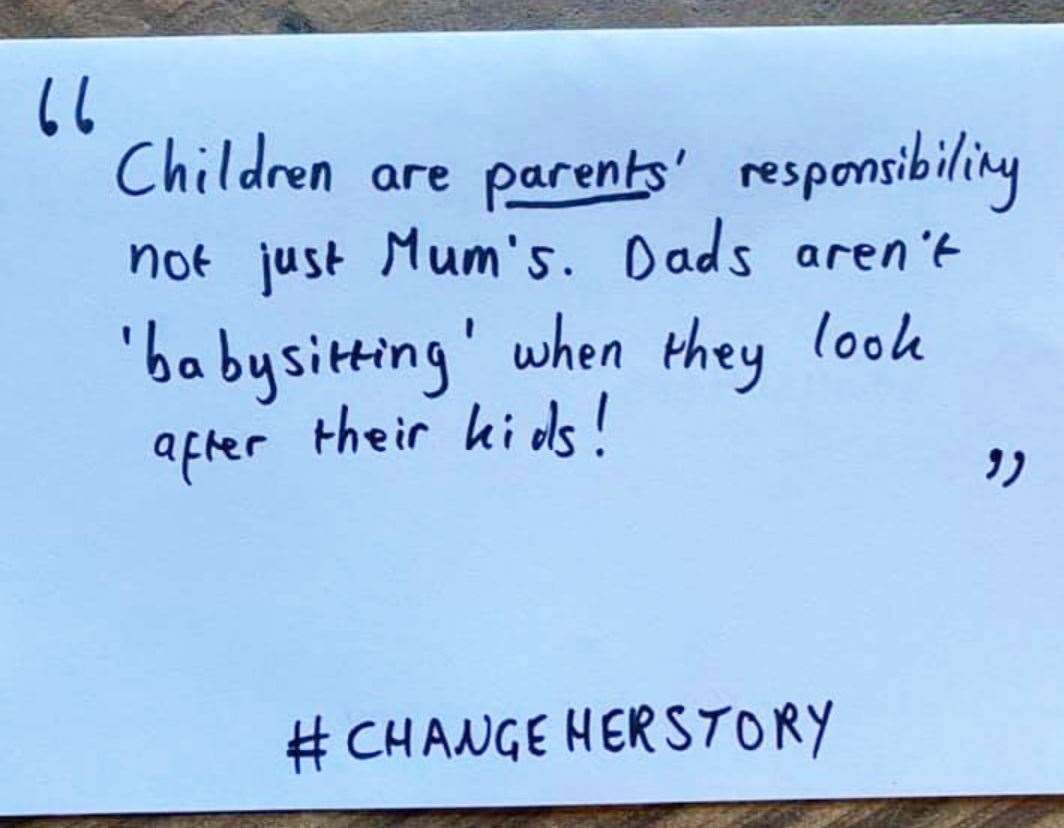 “
Children are parents' responsibility
not just Mum's. Dads aren't
'babysitting' when they look
after their kids!
”
#CHANGEHERSTORY